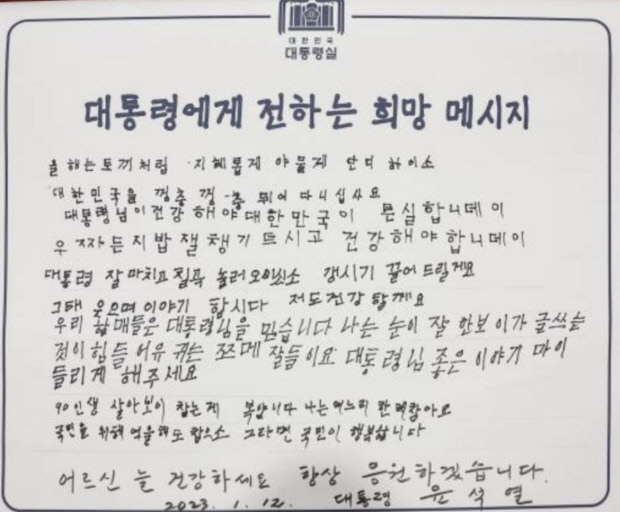 대한민국
대통령실
대통령에게 전하는 희망 메시지
올해는토끼처럼 지혜롭게 야물게 단디 하이소
대한민국을 껑충 껑충 뛰어 다니십사요
대통령님이건강해야대한만국이 튼실합니데이
우짜든지밥잘챙기드시고 건강해야합니데이
대통령 잘마치고칠곡 놀러오잇소 갱시기 끓어드릴게요
그때 웃으며이야기 합시다 저도건강할께요
우리 할매들은대통령님을믿습니다 나는 눈이 잘 안보이가 글쓰는
것이힘들어유 귀는쪼메 잘들이요 대통령님 좋은이야기 마이
들리게 해주세요
90인생 살아보이 참는게 복입니다 나는며느리한테참아요
국민을 위해 억울해도참으소 그라면국민이행복합니다
어르신 늘 건강하세요 항상 응원하겠습니다.
2023. 1. 12. 대통령 윤석열